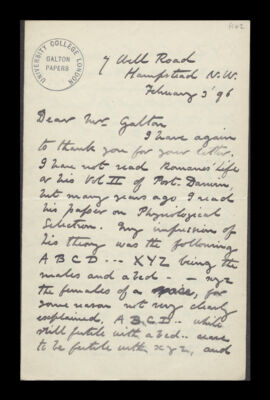 UNIVERSITY COLLEGE LONDON
GALTON
PAPERS
7 Well Road
Hampstead N.W.
February 3' 96
Dear Mr Galton
I have again
to thank you for your letter.
I have not read Romanes' Life
or his Vol II of Post-Darwin,
but many years ago I read
his paper on Physiological
Selection. My impression of
his theory was the following
A B C D --- X Y Z being the
males and a b c d - - xyz
the females of a race, for
some reason not very clearly
explained, A. B. C. D -- while
still fertile with a b c d.. cease
to be fertile with x y z, and